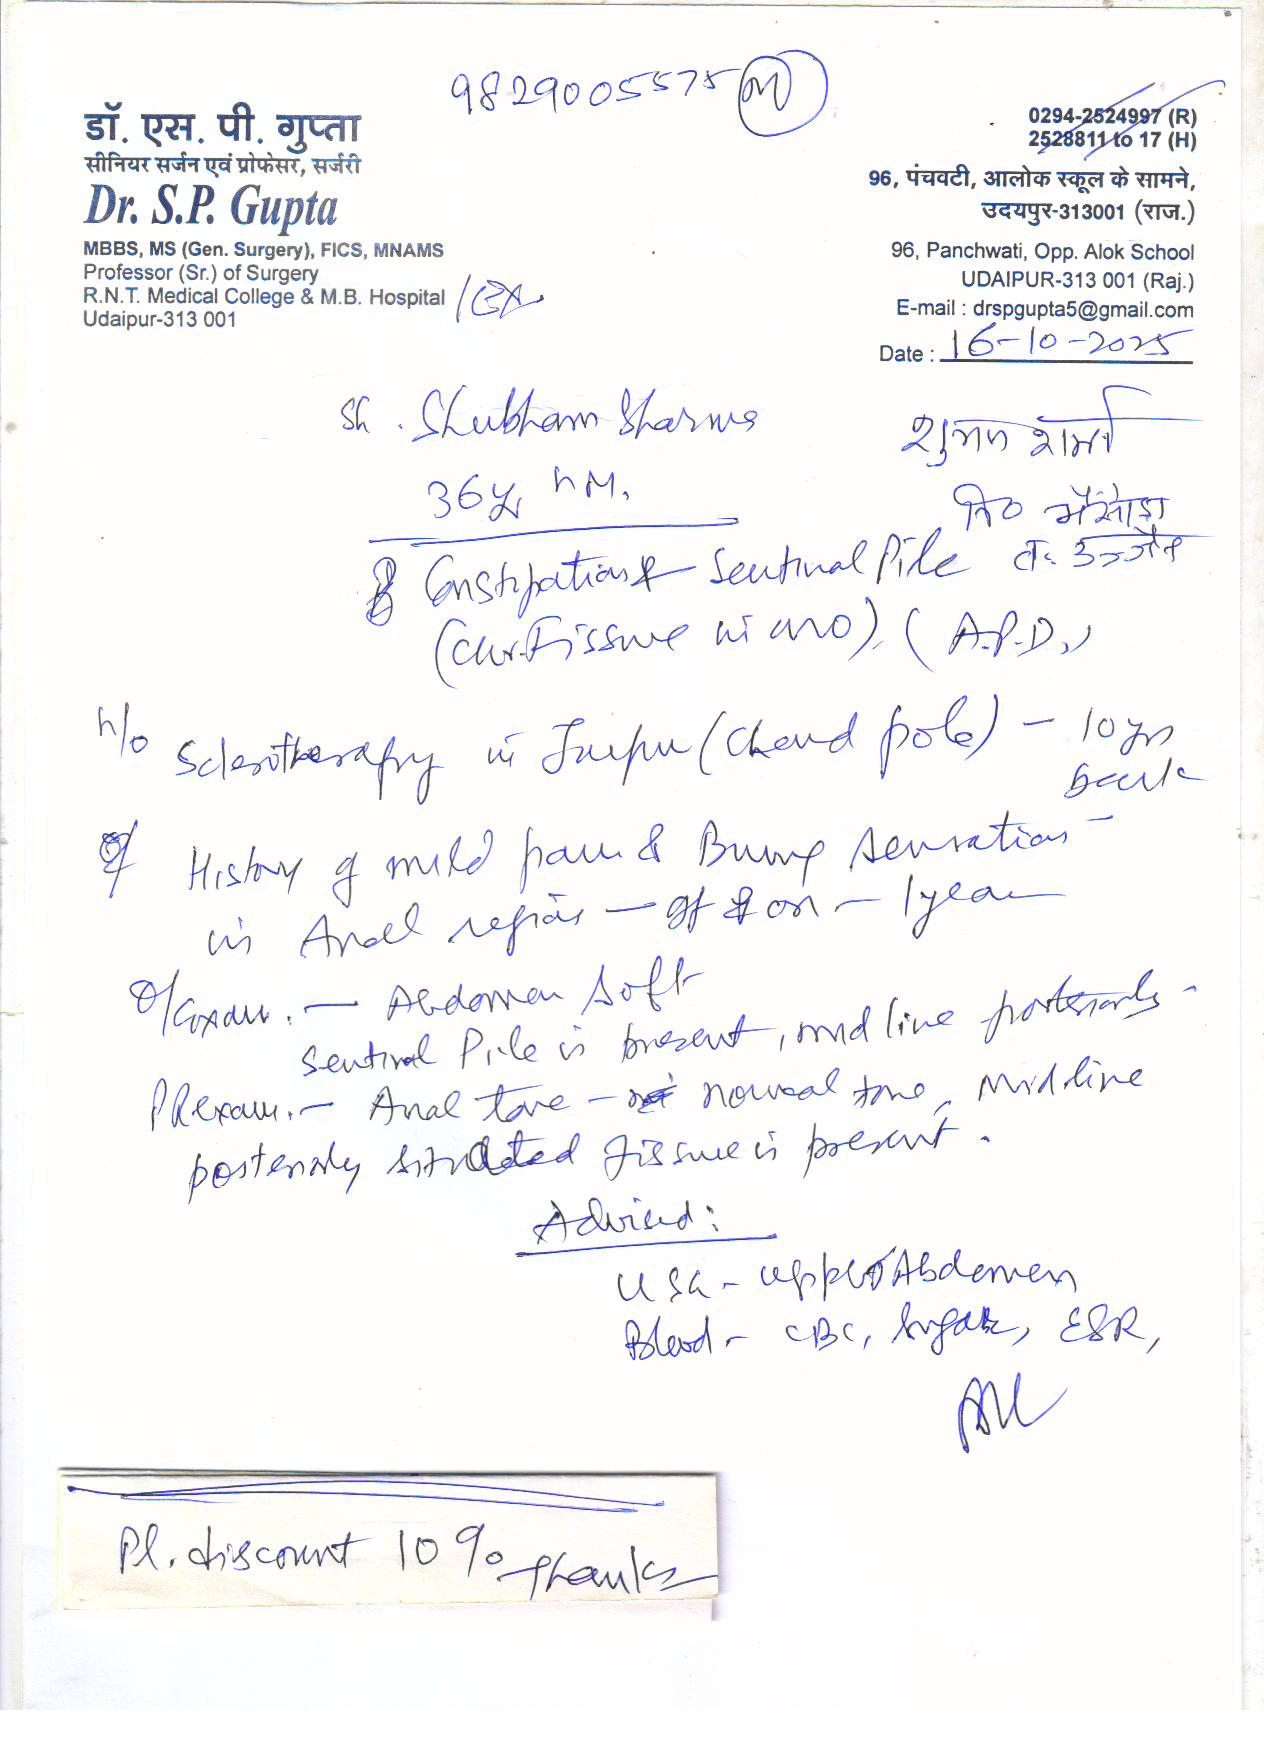 9829005575 (M)
डॉ. एस. पी. गुप्ता
सीनियर सर्जन एवं प्रोफेसर, सर्जरी
Dr. S.P. Gupta
MBBS, MS (Gen. Surgery), FICS, MNAMS
Professor (Sr.) of Surgery
R.N.T. Medical College & M.B. Hospital /Ex
Udaipur-313 001
0294-2524997 (R)
2528811 to 17 (H)
96, पंचवटी, आलोक स्कूल के सामने,
उदयपुर-313001 (राज.)
96, Panchwati, Opp. Alok School
UDAIPUR-313 001 (Raj.)
E-mail : drspgupta5@gmail.com
Date : 16-10-2025
Sh. Shubham Sharma
शुभम शर्मा
36y, hM.
नि०
Constipation & Sentinal Pile
(Chr. Fissure in ano). (A.P.D.)
h/o Sclerotherapy in Jaipur (Chand pole) - 10 yrs
back
History of mild pain & Burning sensation -
in Anal region - off & on - 1 year
O/Exam. - Abdomen Soft
Sentinal Pile is present, midline posteriorly -
PR exam. - Anal tone - normal tone, Midline
posteriorly situated fissure is present.
Advised:
USG - upper Abdomen
Blood - CBC, Sugar, ESR,
Pl. discount 10% Thanks